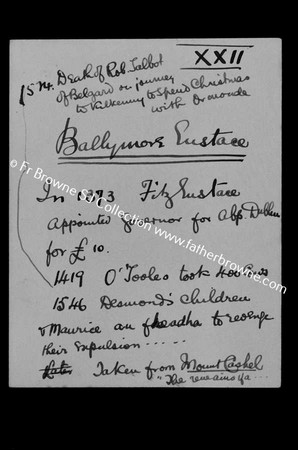 XXII
15 Nr. Death of Rob. Talbot
of Belgard on journey
to Kilkenny to spend Christmas
with Ormonde
Ballymore Eustace
In 1373 FitzEustace
appointed governor for Abp. Dublin
for £10.
1419 O'Tooles took 400
1546 Desmond's children
& Maurice an to revenge
their expulsion.....
Later Taken from Mount Cashel
"The remains
© Fr Browne SJ Collection www.fatherbrowne.com